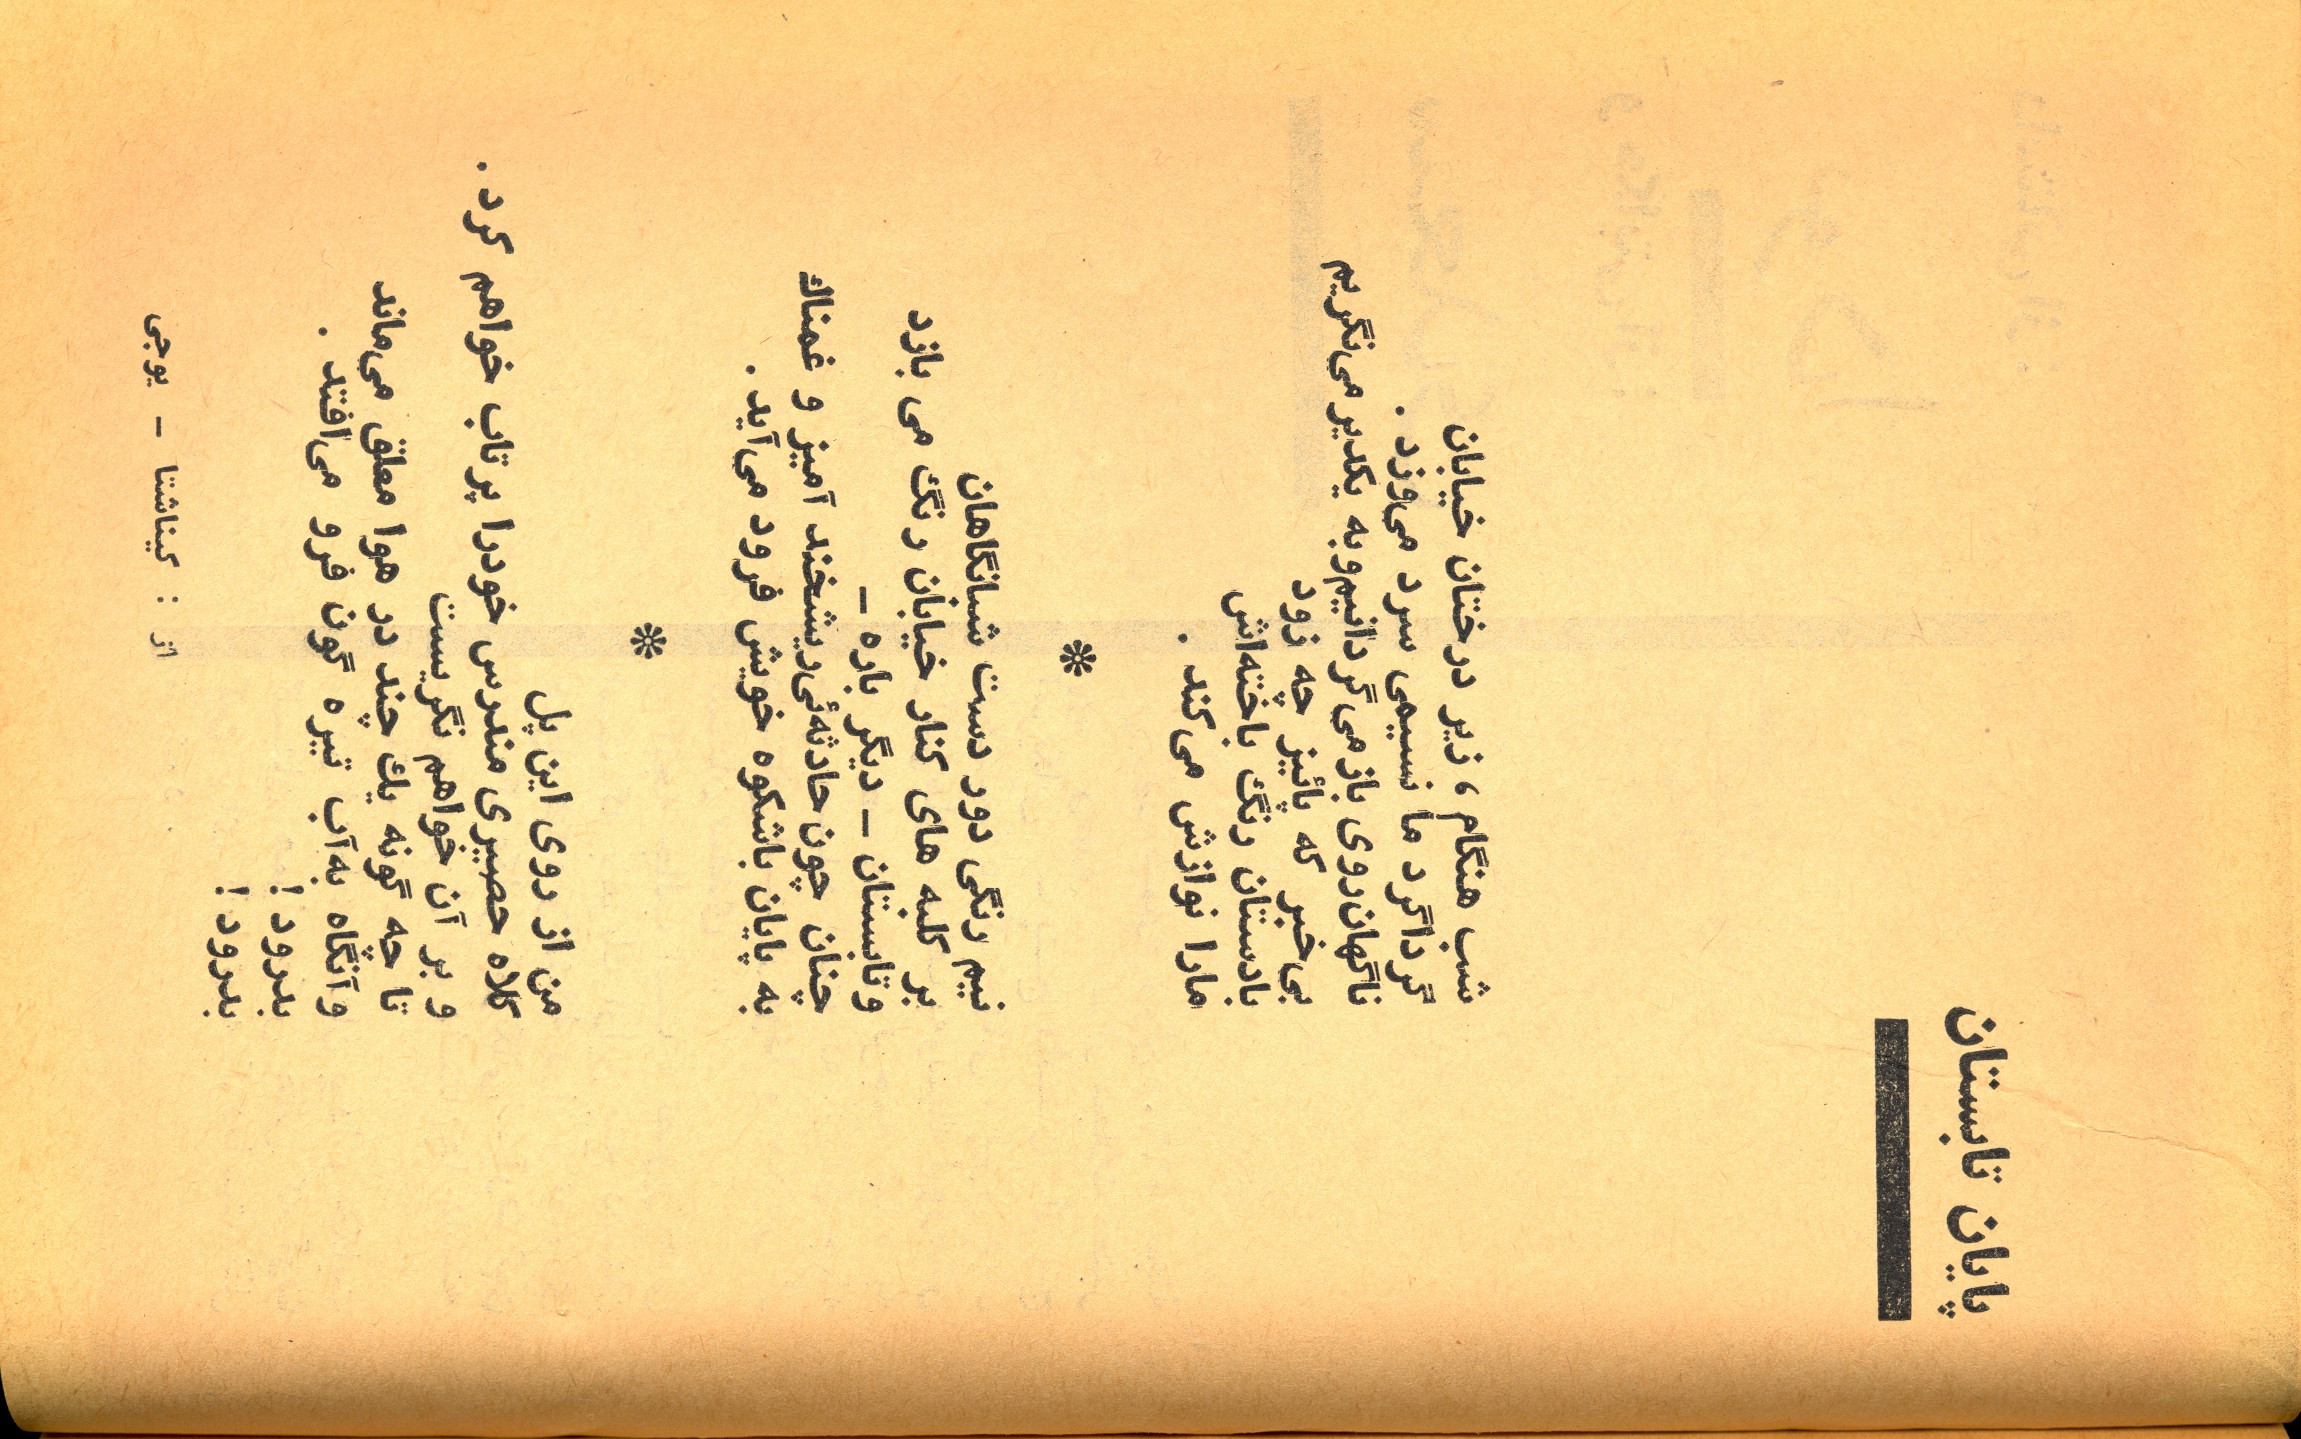 پایان تابستان
شب هنگام، زیر درختان خیابان
گرداگرد ما نسیمی سرد می‌وزد .
ناگهان‌روی بازمی‌گردانیم‌وبه یکدیرمی‌نگریم
بی‌خبر که پائیز چه زود
بادستان رنگ باخته‌اش
مارا نوازش می‌کند .
❊
نیم رنگی دور دست شبانگاهان
بر کلبه های کنار خیابان رنگ می بازد
وتابستان ــ دیگر باره ــ
چنان چون‌حادثه‌ئی‌ریشخند آمیز و غمناك
به پایان باشکوه خویش فرود می‌آید .
❊
من از روی این پل
کلاه حصیری مندرس خودرا پرتاب خواهم کرد .
و بر آن خواهم نگریست
تا چه گونه یك چند در هوا معلق می‌ماند
وآنگاه به‌آب تیره گون فرو می‌افتد .
بدرود !
بدرود !
از : کیناشتا ــ یوجی